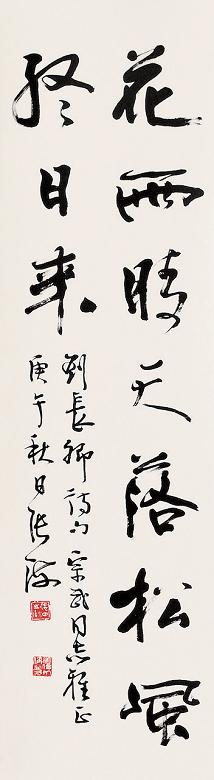 花雨晴天落松風
終日来
劉長卿詩句宗武同志雅正
庚午秋日張